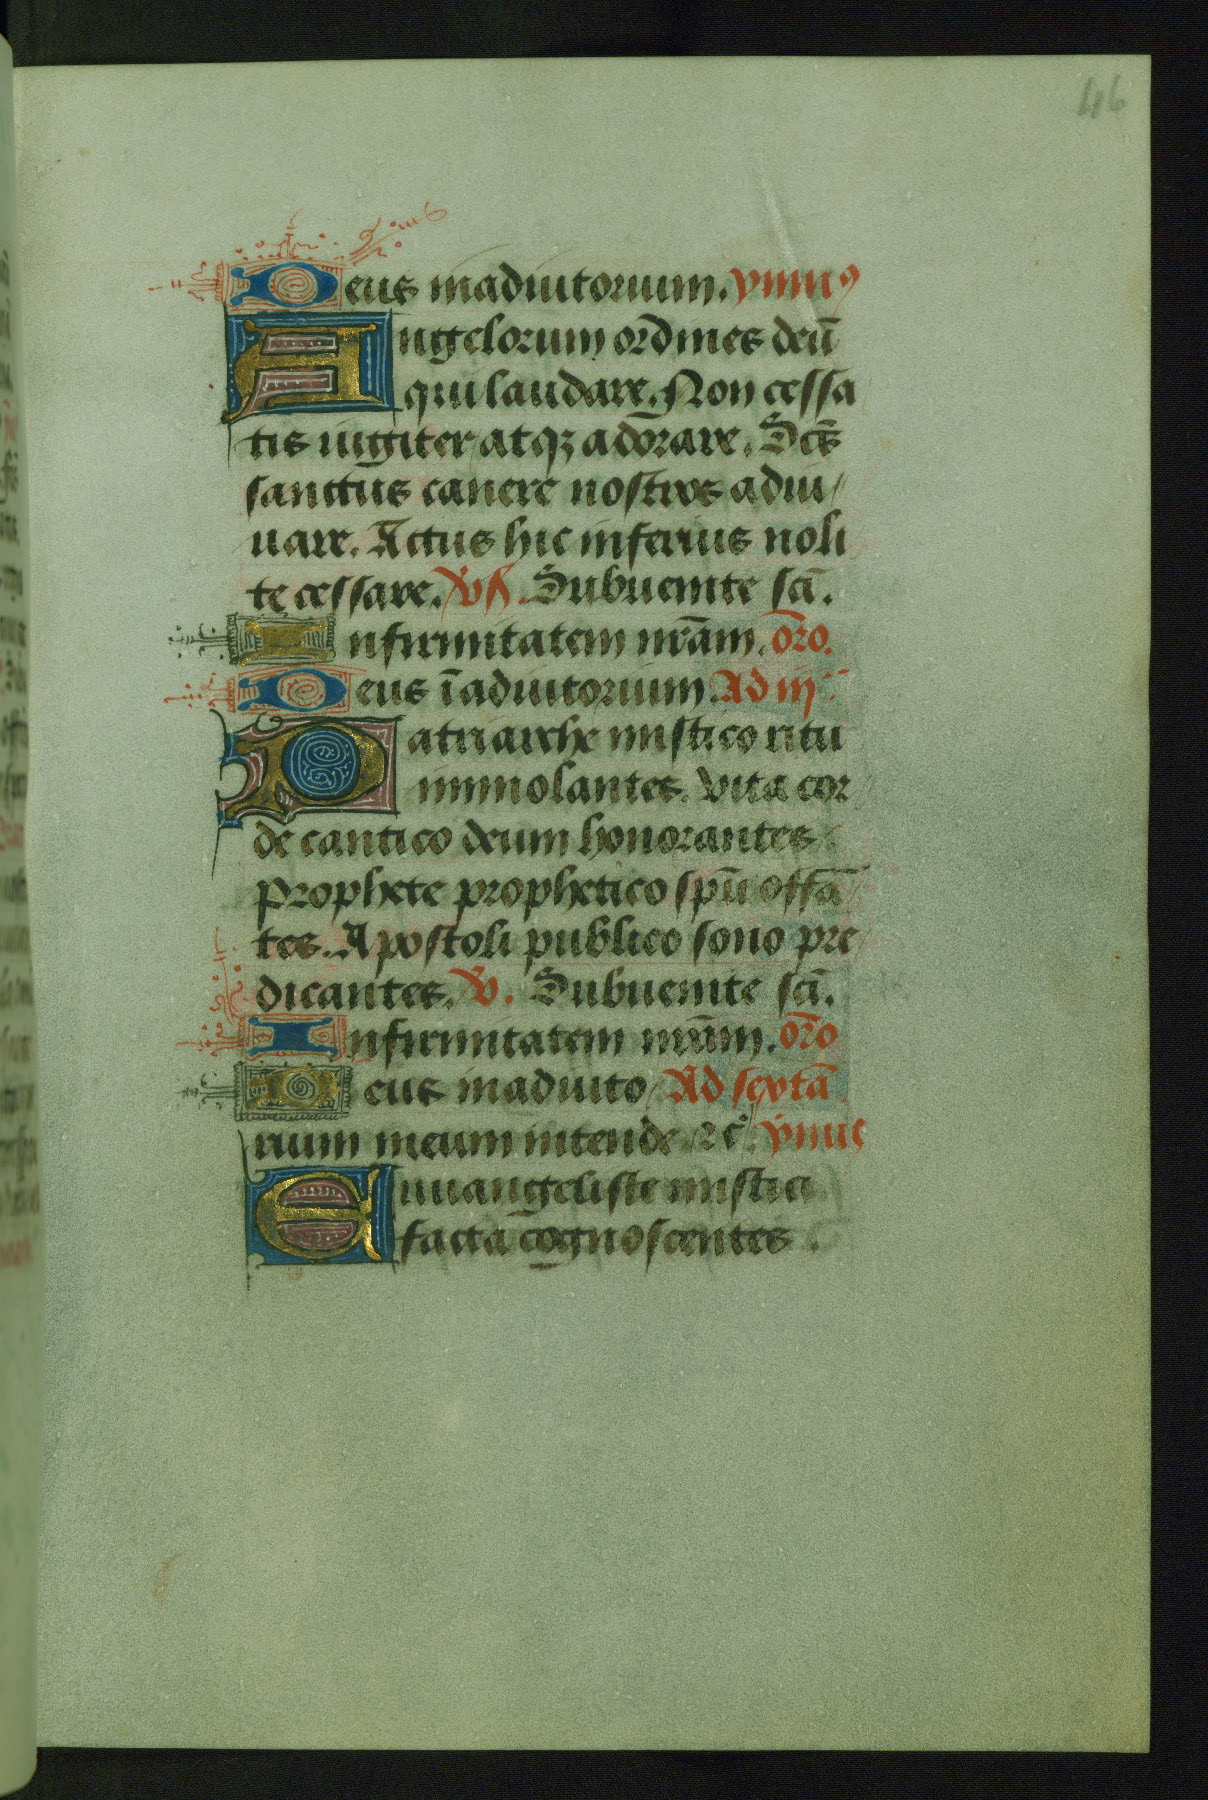 46
Deus in adiutorium. ymnꝰ
Angelorum ordines deū
qui laudare. Non cessa
tis iugiter atqꝫ adorare. Scūs
sanctus canere nostros adiu/
uare. Actus hic inferius noli
te cessare. v̓s. Subuenite scī.
Infirmitatem nr̄am. or̄o.
Deus ī adiutorium. Ad iij
Patriarche mistico ritu
immolantes. Vita cor
de cantico deum honorantes
Prophete prophetico sp̄u offā
tes. Apostoli publico sono pre
dicantes. v̓. Subuenite scī.
Infirmitatem nr̄am. or̄o
Deus in adiuto/ Ad sextā
rium meum intende ⁊c̄. ymnꝰ
Euuangeliste mistica
facta cognoscentes.